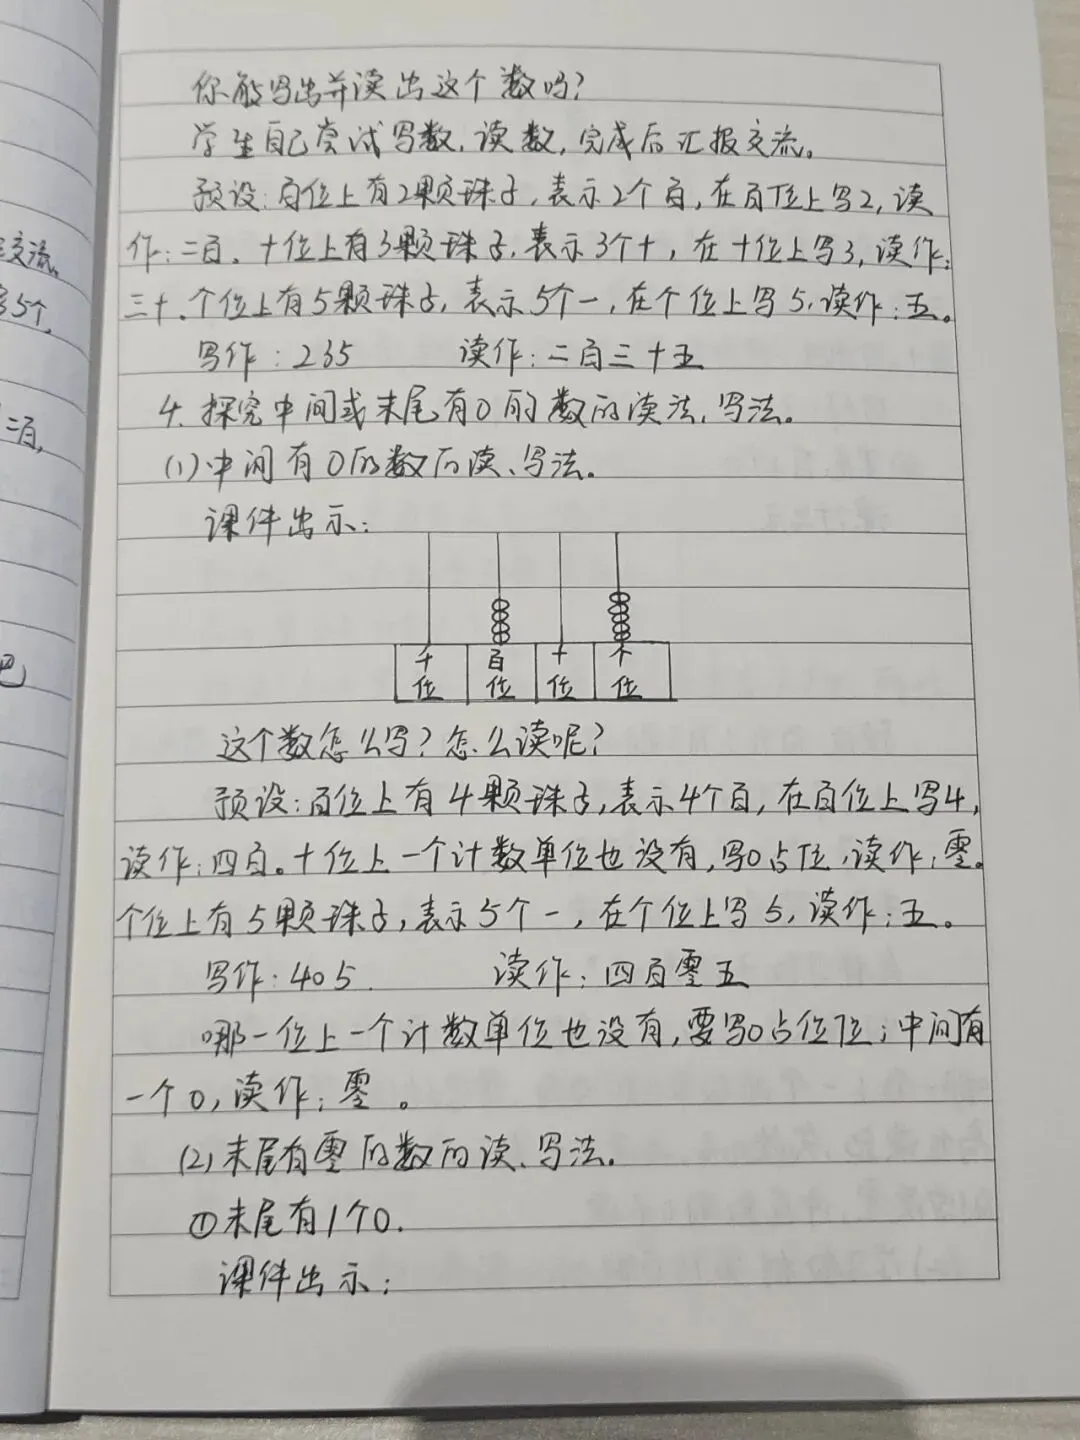 你能写出并读出这个数吗?
学生自己尝试写数,读数,完成后汇报交流。
预设:百位上有2颗珠子,表示2个百,在百位上写2,读
作:二百。十位上有3颗珠子,表示3个十,在十位上写3,读作:
三十。个位上有5颗珠子,表示5个一,在个位上写5,读作:五。
写作:235 读作:二百三十五
4.探究中间或末尾有0的数的读法、写法。
(1)中间有0的数的读、写法。
课件出示:
千位 百位 十位 个位
这个数怎么写?怎么读呢?
预设:百位上有4颗珠子,表示4个百,在百位上写4,
读作:四百。十位上一个计数单位也没有,写0占位,读作:零。
个位上有5颗珠子,表示5个一,在个位上写5,读作:五。
写作:405. 读作:四百零五
哪一位上一个计数单位也没有,要写0占位位;中间有
一个0,读作:零。
(2)末尾有零的数的读、写法。
①末尾有1个0.
课件出示:
交流。
5个,
二百,
吧